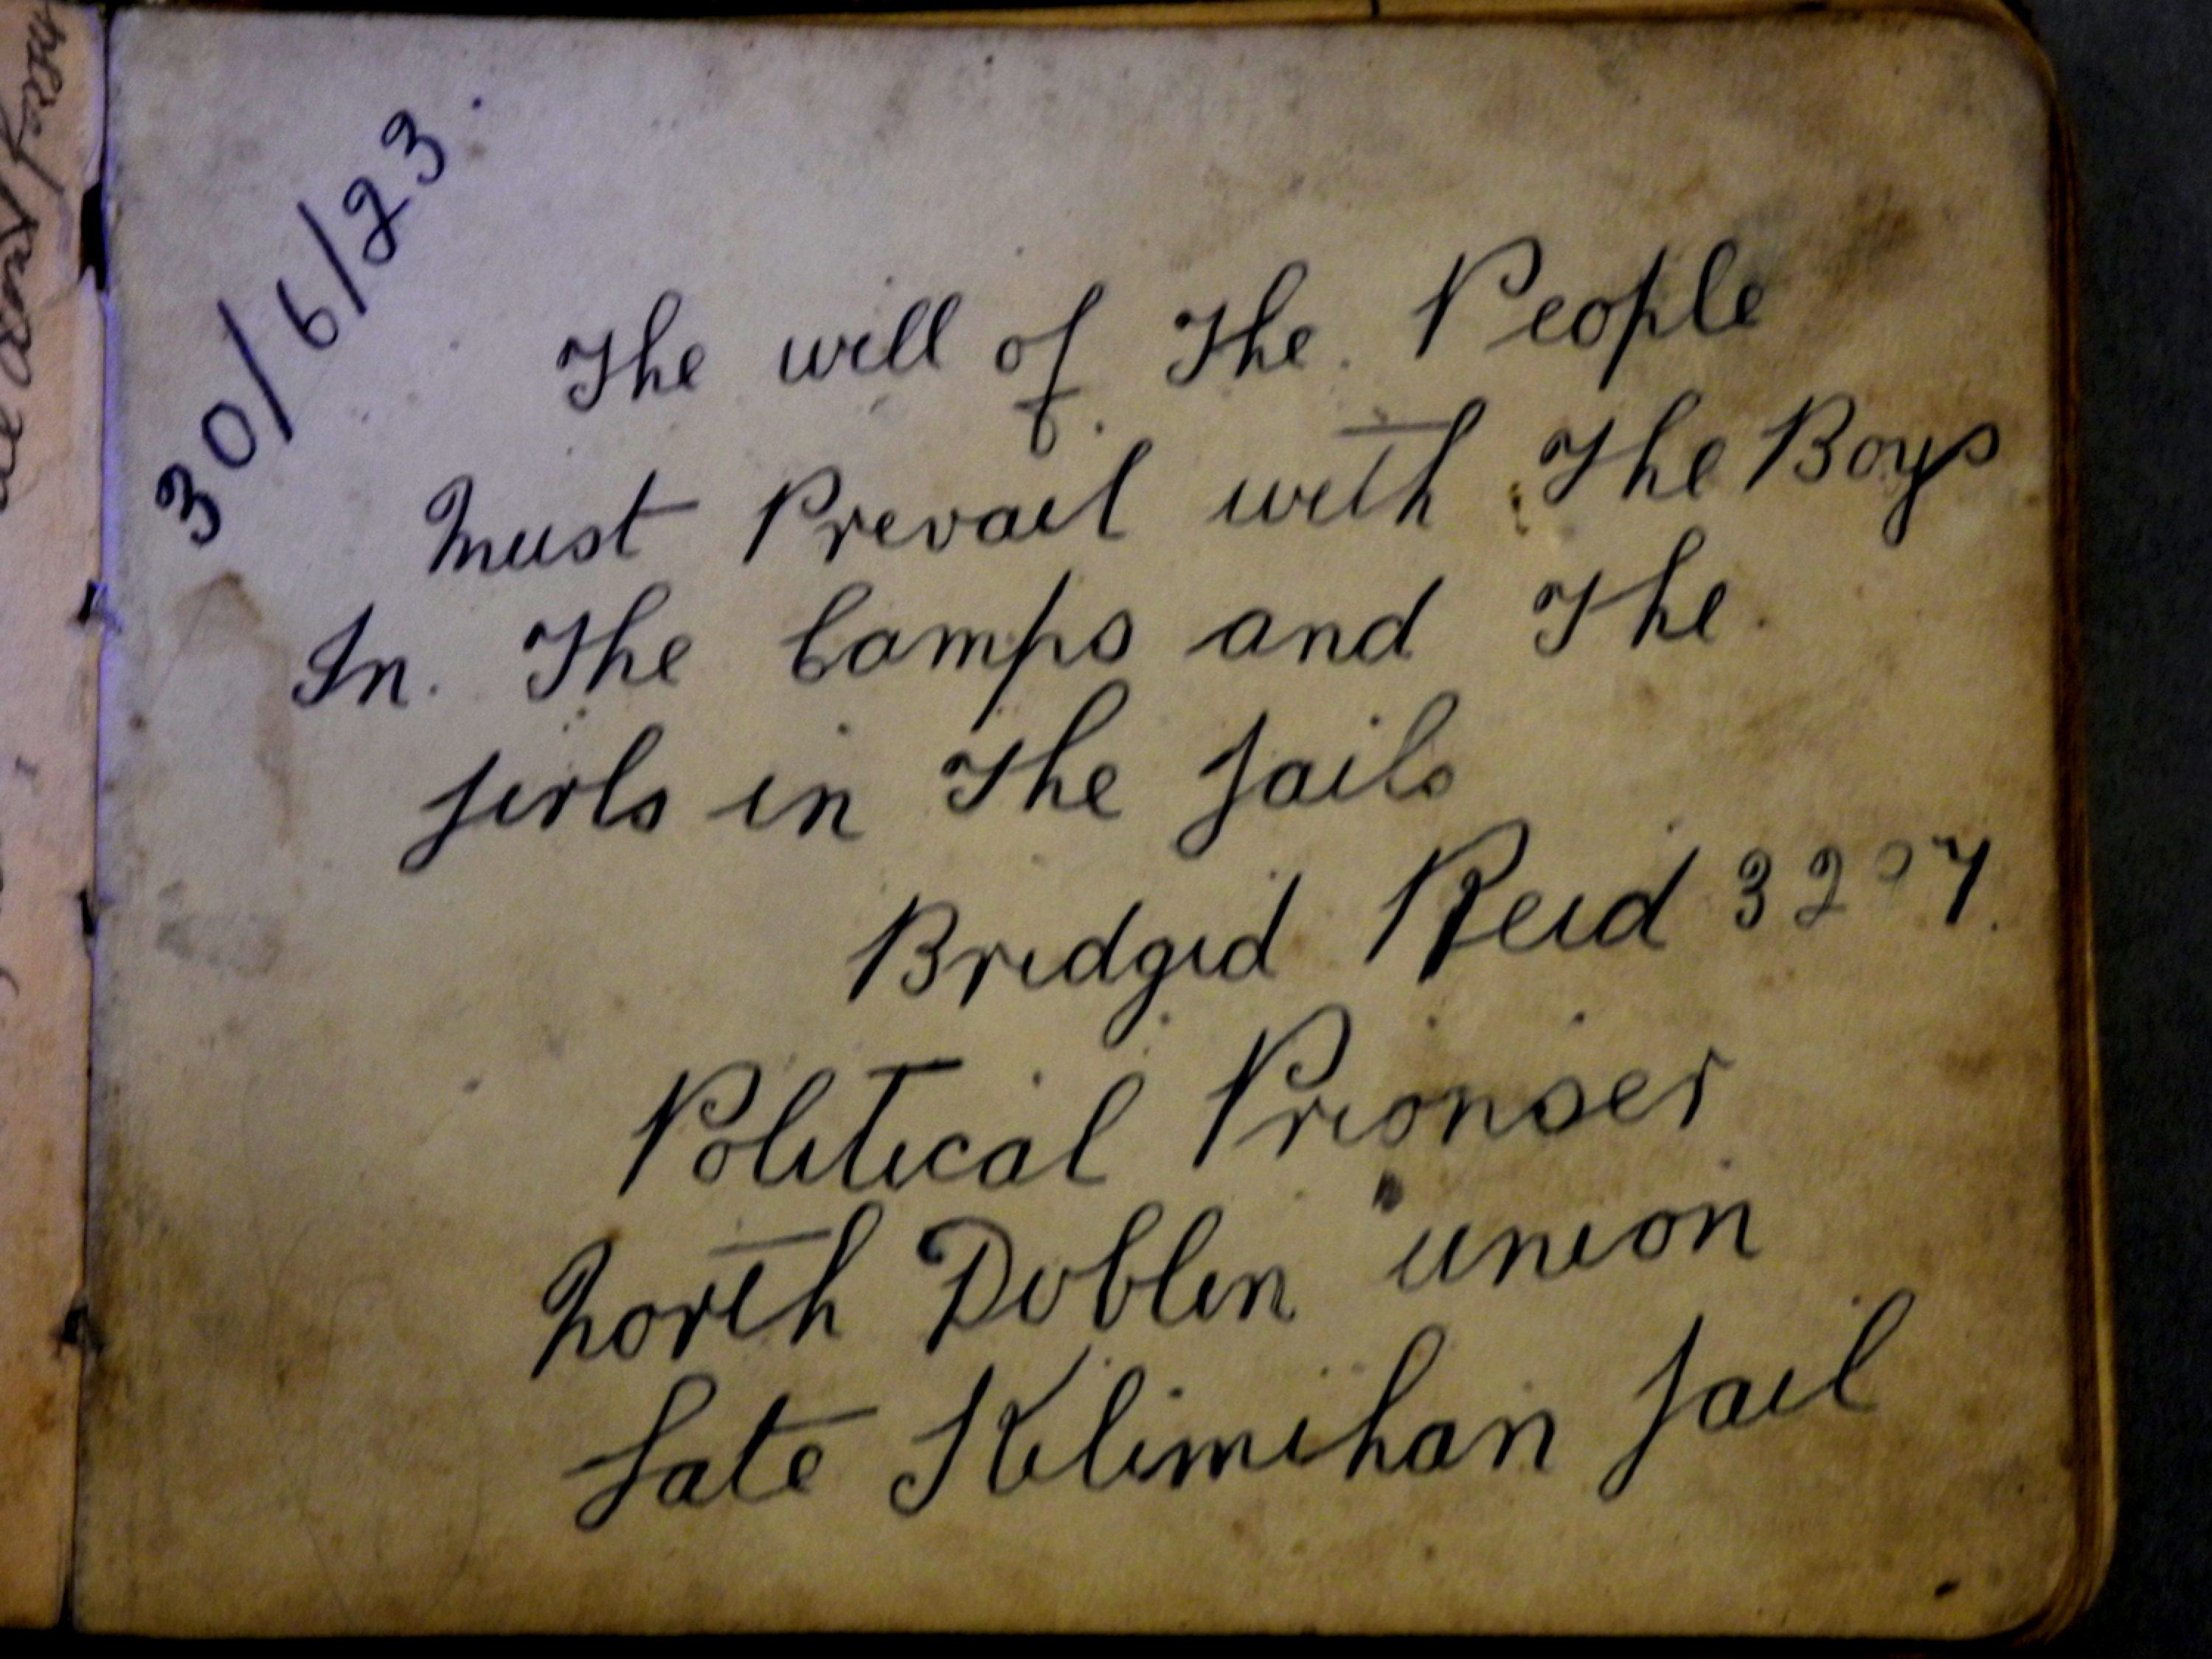 30/6/23.
The will of The People
Must Prevail with The Boys
In. The Camps and The
girls in The Jails
Bridgid Reid 3207.
Political Prionser
North Dublin union
Late Kilimihan Jail